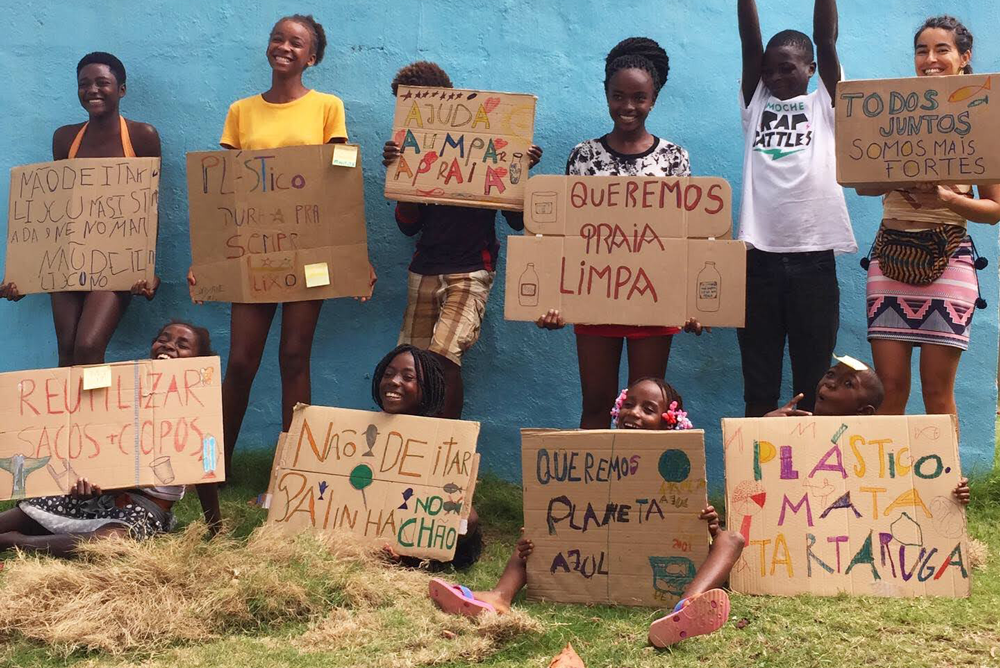 NÃO DEITAR
LIXO U MAS ISTM
ADA 9 NE NO MAR
NÃO DEITEM
LIXO NO
PLÁSTICO
DURA PRA
SEMPRE
LIXO
AJUDA
A LIMPAR
A PRAIA
QUEREMOS
PRAIA
LIMPA
MOCHE
RAP
BATTLES
TODOS
JUNTOS
SOMOS MAIS
FORTES
REUTILIZAR
SACOS + COPOS
NÃO DEITAR
PALINHA
NO
CHÃO
QUEREMOS
PLANETA
AZUL
PLÁSTICO
MATA
TARTARUGA